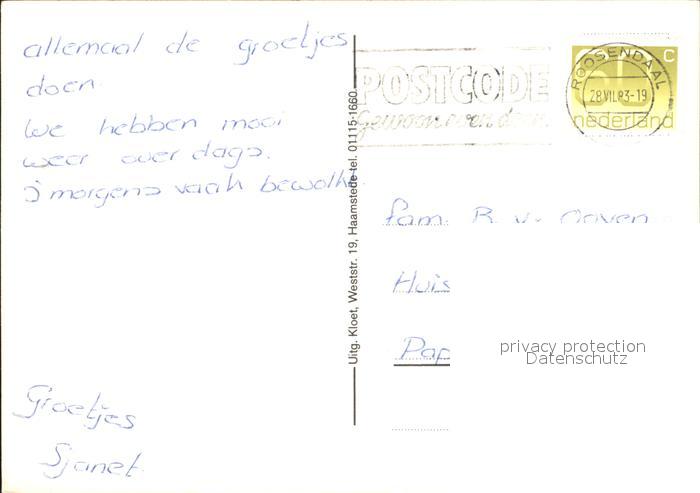 allemaal de groetjes
doen.
We hebben mooi
weer over dags.
's morgens vaak bewolkt.
Groetjes
Sjanet.
Uitg. Kloet, Weststr. 19, Haamstede tel. 01115-1660
POSTCODE
Gewoon even doen
ROOSENDAAL
28 VII. 83-19
C
nederland
fam. R. v.
Huis
Pap
privacy protection
Datenschutz